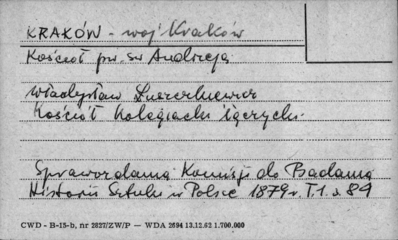 KRAKÓW - woj Kraków
Kościół pw. św Andrzeja
Władysław Łuszczkiewicz
Kościół Kolegiacki łęczycki.
Sprawozdania Komisji do Badania
Historii Sztuki w Polsce 1879 r. T.1 s 84
CWD - B-15-b, nr 2827/ZW/P — WDA 2694 13.12.62 1.700.000